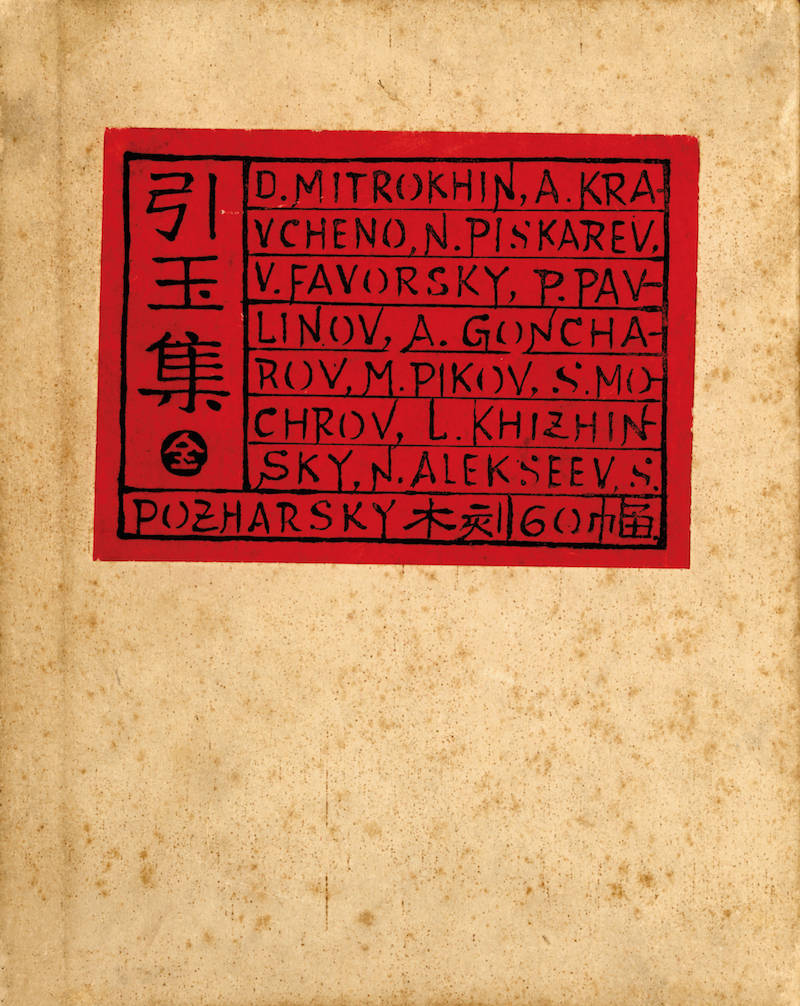 引玉集
全
D. MITROKHIN, A. KRA-
VCHENO, N. PISKAREV,
V. FAVORSKY, P. PAV-
LINOV, A. GONCHA-
ROV, M. PIKOV, S. MO-
CHROV, L. KHIZHIN-
SKY, N. ALEKSEEV, S.
POZHARSKY 木刻 60幅